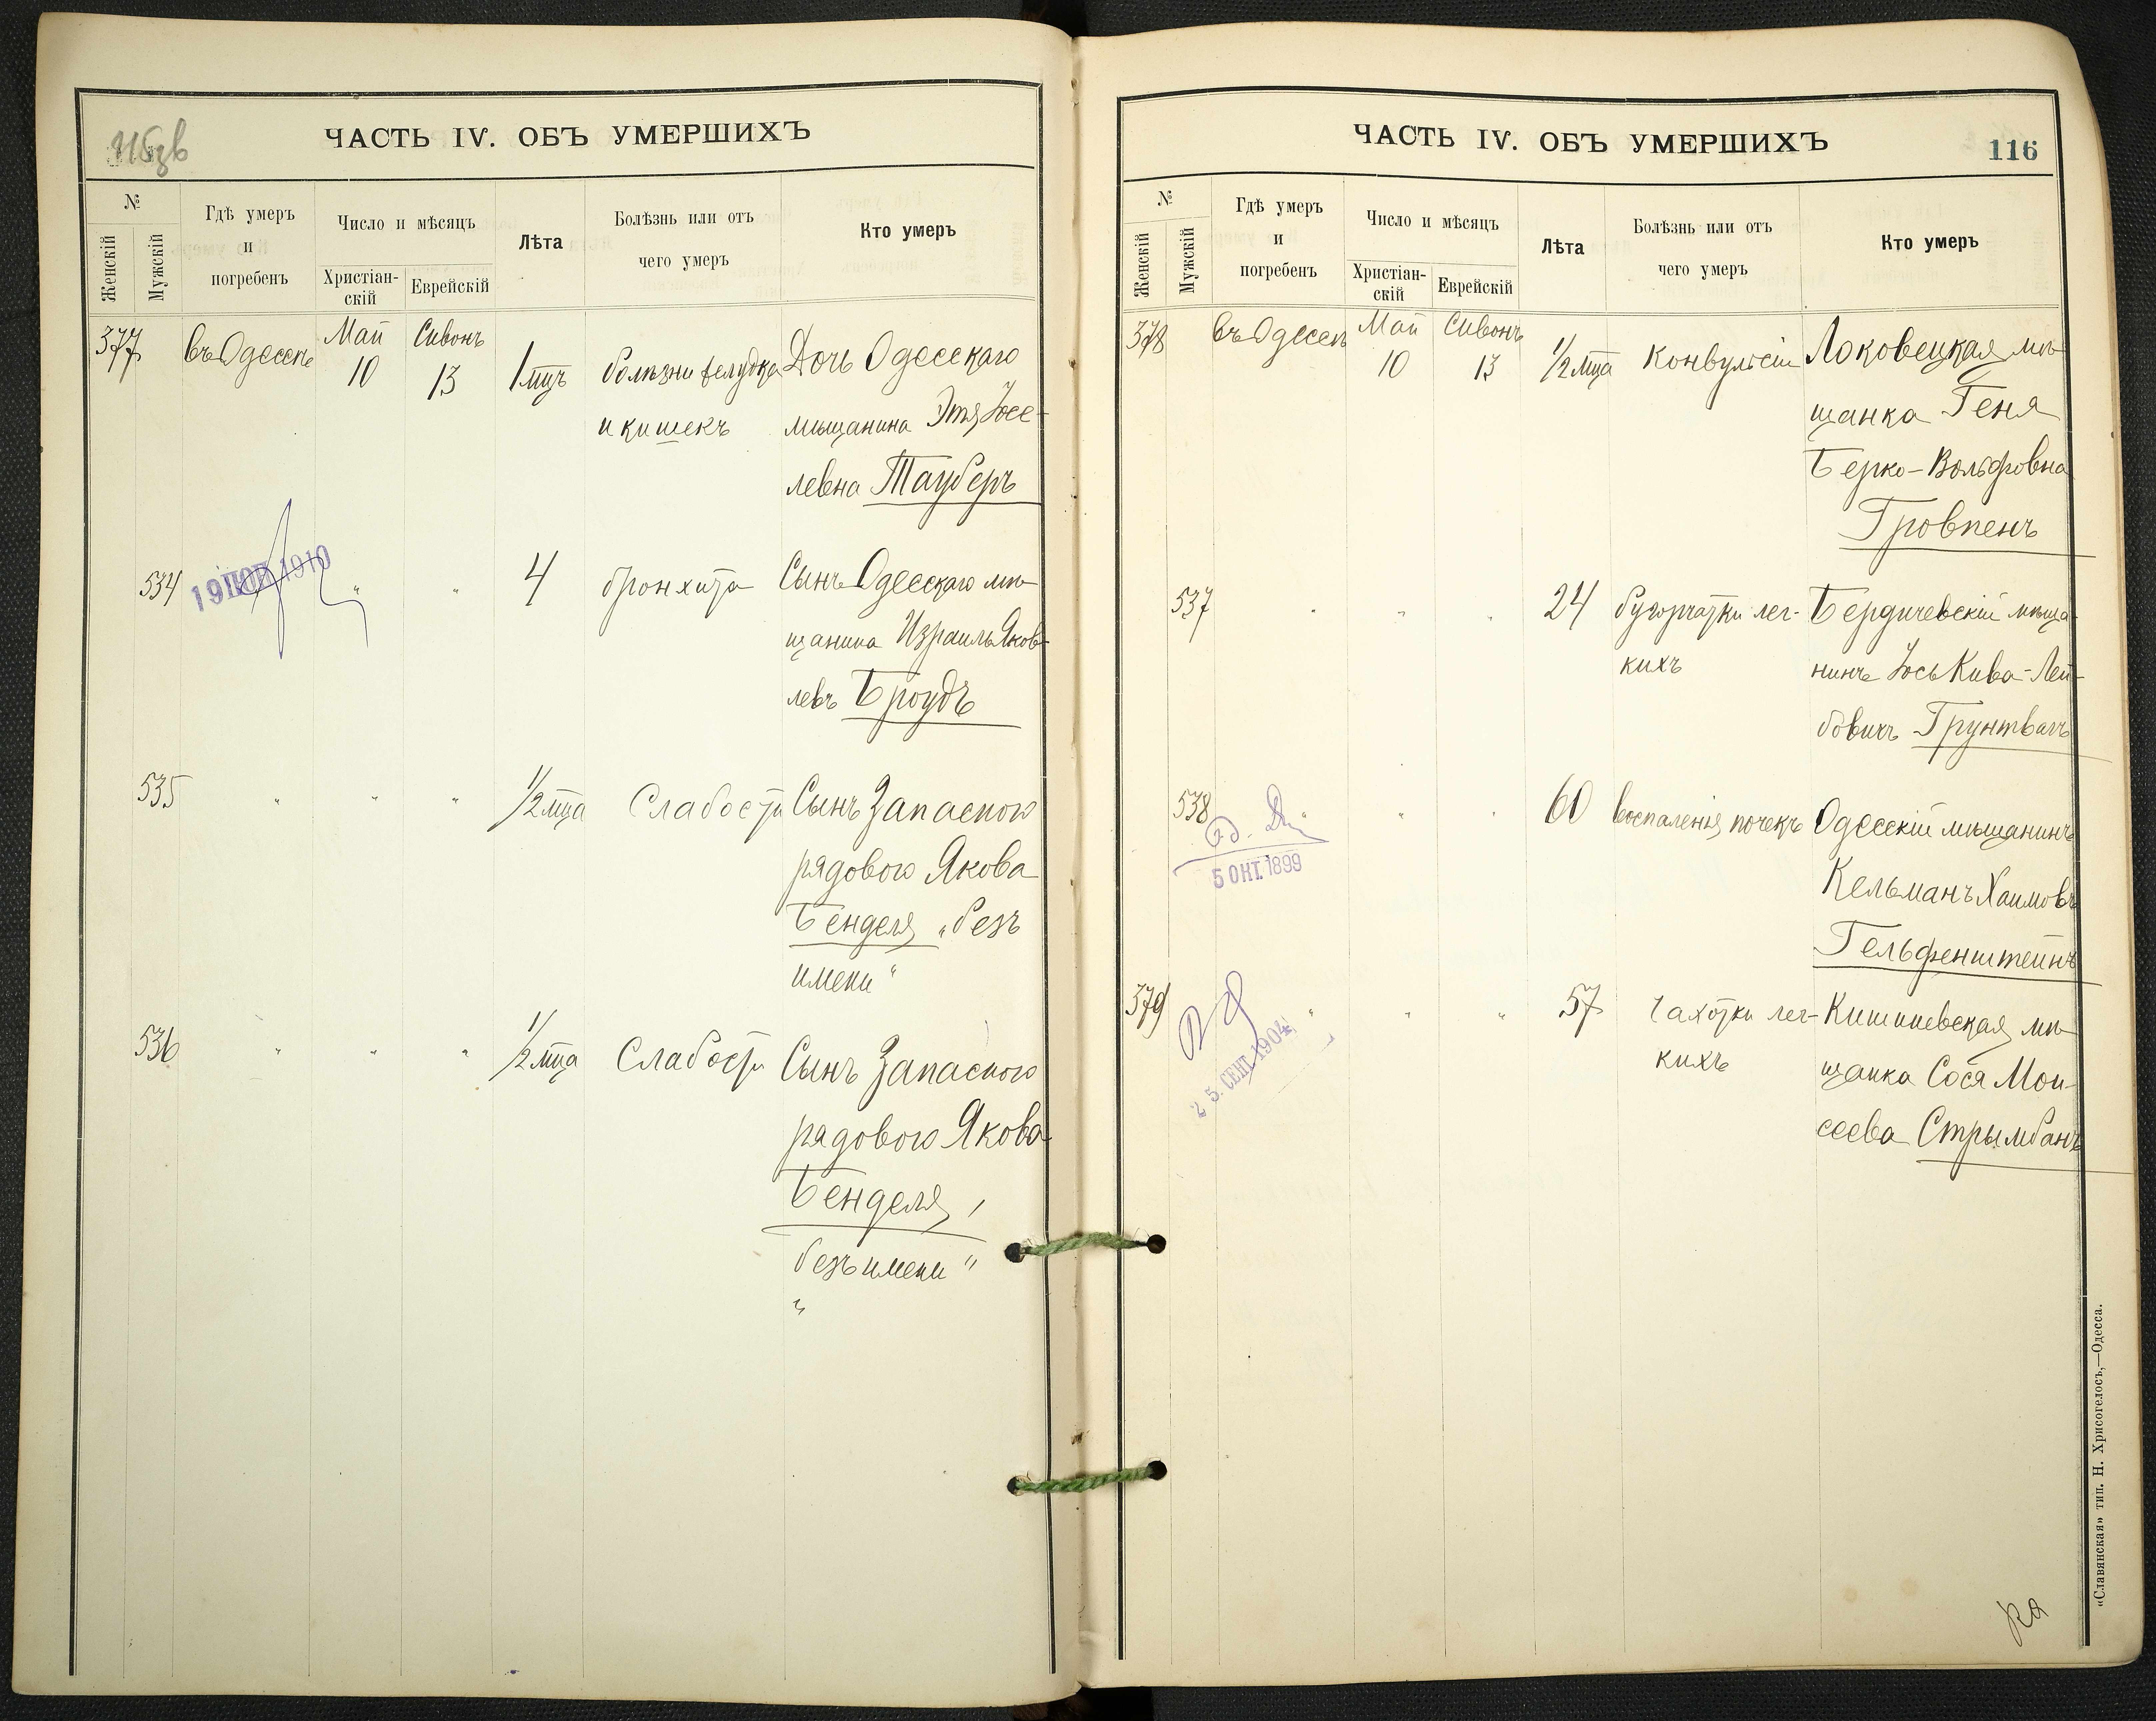 ЧАСТЬ IV. ОБЪ УМЕРШИХЪ
№
Женскій
Мужскій
Гдѣ умеръ
и
погребенъ
Число и мѣсяцъ
Христіан-
скій
Еврейскій
Лѣта
Болѣзнь или отъ
чего умеръ
Кто умеръ
377 въ Одессѣ Май 10 Сивонъ 13 1 мцъ болѣзни желудка Дочь Одесскаго
и кишекъ мѣщанина Этя Іосе-
левна Тауберъ
534 " " 4 бронхита Сынъ Одесскаго мѣ-
щанина Израиль Яков-
левъ Броудъ
19 1910
535 " " " 1/2 мца Слабости Сынъ Запасного
рядового Якова
Бенделя "безъ
имени"
536 " " " 1/2 мца Слабости Сынъ Запасного
рядового Якова
Бенделя,
безъ имени"
"
ЧАСТЬ IV. ОБЪ УМЕРШИХЪ
116
№
Женскій
Мужскій
Гдѣ умеръ
и
погребенъ
Число и мѣсяцъ
Христіан-
скій
Еврейскій
Лѣта
Болѣзнь или отъ
чего умеръ
Кто умеръ
378 въ Одессѣ Май 10 Сивонъ 13 1/2 мца Конвульсіи Локовецкая мѣ-
щанка Геня
Берко-Вольфовна
Гровпенъ
537 " " " 24 бугорчатки лег- Бердичевскій мѣща-
кихъ нинъ Іось Кива-Лей-
бовичъ Грунтвагъ
538 " " " 60 воспаленія почекъ Одесскій мѣщанинъ
Кельманъ Хаимовъ
Гельфенштейнъ
5 ОКТ. 1899
379 " " " 57 Чахотки лег- Кишиневская мѣ-
кихъ щанка Сося Мои-
сеева Стрымбанъ
25. СЕНТ. 1904
«Славянская» тип. Н. Хрисогелосъ,—Одесса.